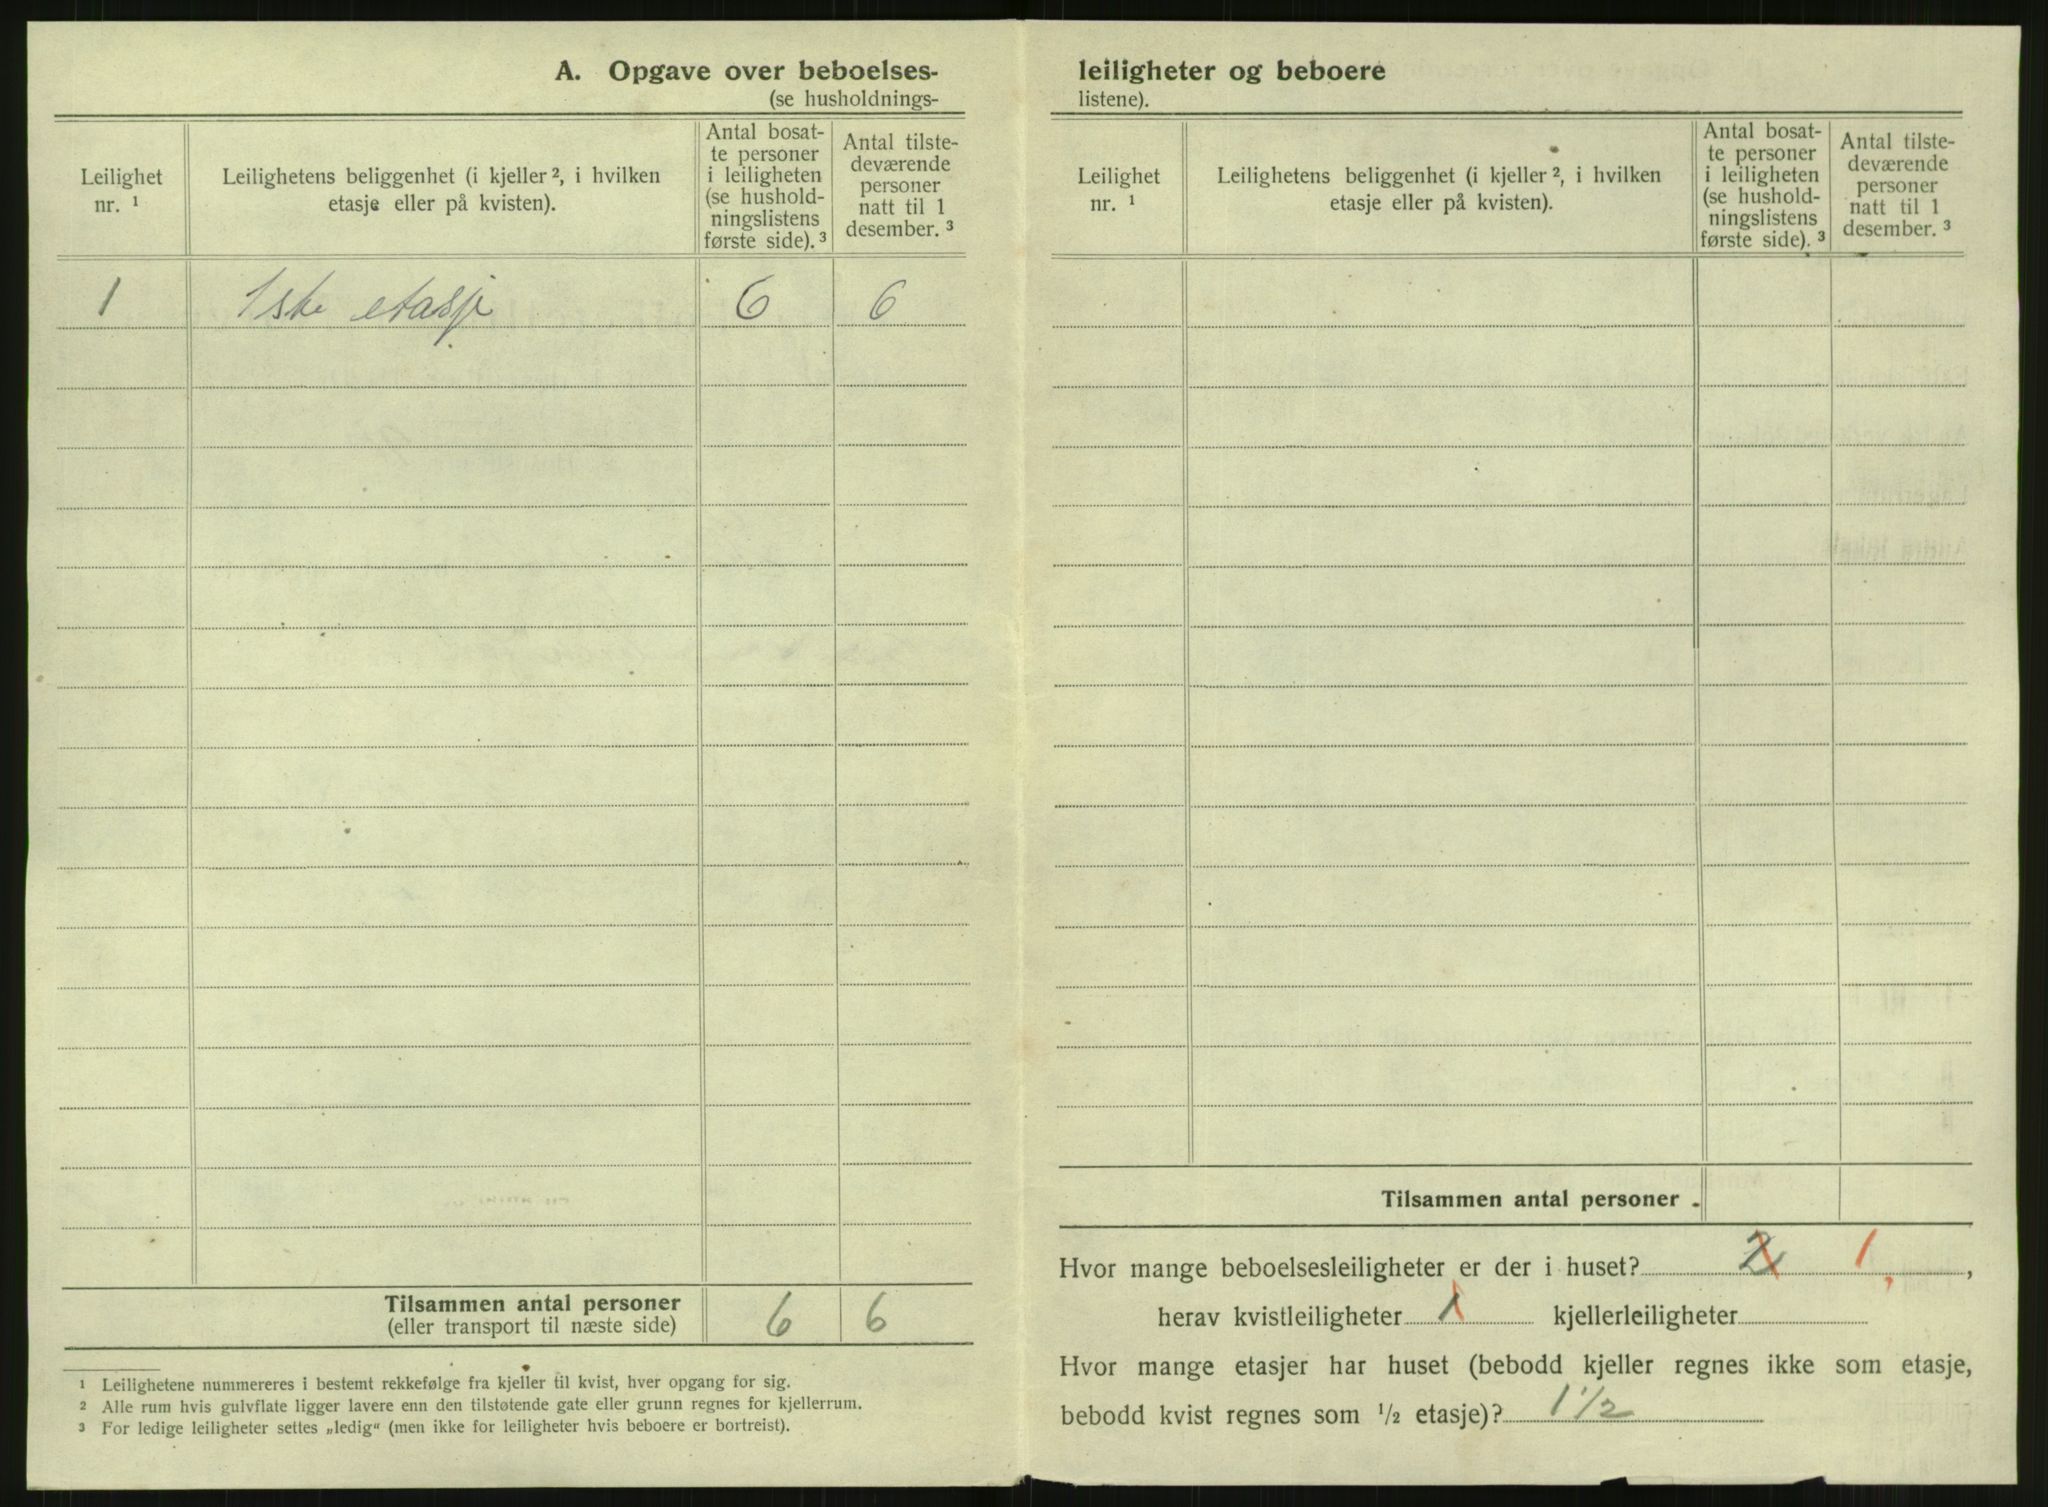 A. Opgave over beboelses-
(se husholdnings-
Leilighet
nr. ¹
Leilighetens beliggenhet (i kjeller ², i hvilken
etasje eller på kvisten).
Antal bosat-
te personer
i leiligheten
(se hushold-
ningslistens
første side). ³
Antal tilste-
deværende
personer
natt til 1
desember. ³
1 1ste etasje 6 6
Tilsammen antal personer
(eller transport til næste side)
6 6
¹ Leilighetene nummereres i bestemt rekkefølge fra kjeller til kvist, hver opgang for sig.
² Alle rum hvis gulvflate ligger lavere enn den tilstøtende gate eller grunn regnes for kjellerrum.
³ For ledige leiligheter settes „ledig“ (men ikke for leiligheter hvis beboere er bortreist).
leiligheter og beboere
listene).
Leilighet
nr. ¹
Leilighetens beliggenhet (i kjeller ², i hvilken
etasje eller på kvisten).
Antal bosat-
te personer
i leiligheten
(se hushold-
ningslistens
første side). ³
Antal tilste-
deværende
personer
natt til 1
desember. ³
Tilsammen antal personer .
Hvor mange beboelsesleiligheter er der i huset? 2 1,
herav kvistleiligheter 1 kjellerleiligheter
Hvor mange etasjer har huset (bebodd kjeller regnes ikke som etasje,
bebodd kvist regnes som ½ etasje)? 1 ½